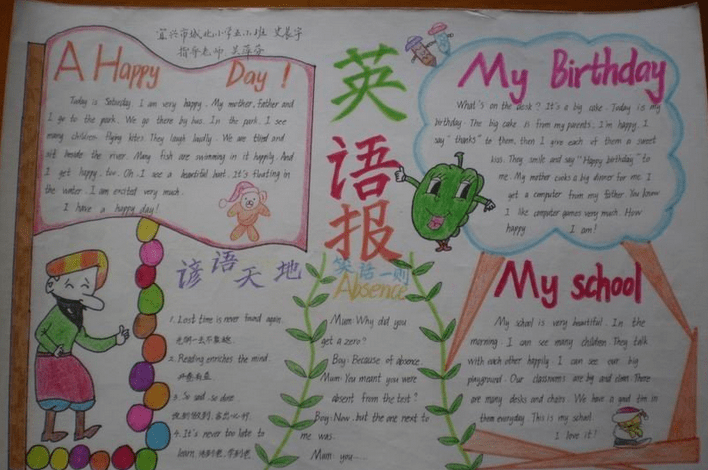 宜兴市城北小学五
指导老师
A Happy Day!
Today is Saturday. I am very happy. My mother, father and
I go to the park. We go there by bus. In the park, I see
many children flying kites. They laugh loudly. We are tired and
sit beside the river. Many fish are swimming in it happily. And
I get happy, too. Oh, I see a beautiful boat. It's floating in
the water. I am excited very much.
I have a happy day!
英语报
My Birthday
What's on the desk? It's a big cake. Today is my
birthday. The big cake is from my parents. I'm happy. I
say "thanks" to them, then I give each of them a sweet
kiss. They smile and say "Happy birthday" to
me. My mother cooks a big dinner for me. I
get a computer from my father. You know
I like computer games very much. How
happy I am!
谚语天地
1. Lost time is never found again.
2. Reading enriches the mind.
开卷有益
3. So said, so done.
说到做到,言出必行.
4. It's never too late to
learn. 活到老,学到老.
笑话一则
Absence
Mum: Why did you
get a zero?
Boy: Because of absence.
Mum: You meant you were
absent from the test?
Boy: Now, but the one next to
me was.
Mum: you....
My school
My school is very beautiful. In the
morning, I can see many children. They talk
with each other happily. I can see our big
playground. Our classrooms are big and clean. There
are many desks and chairs. We have a good time in
them everyday. This is my school.
I love it!